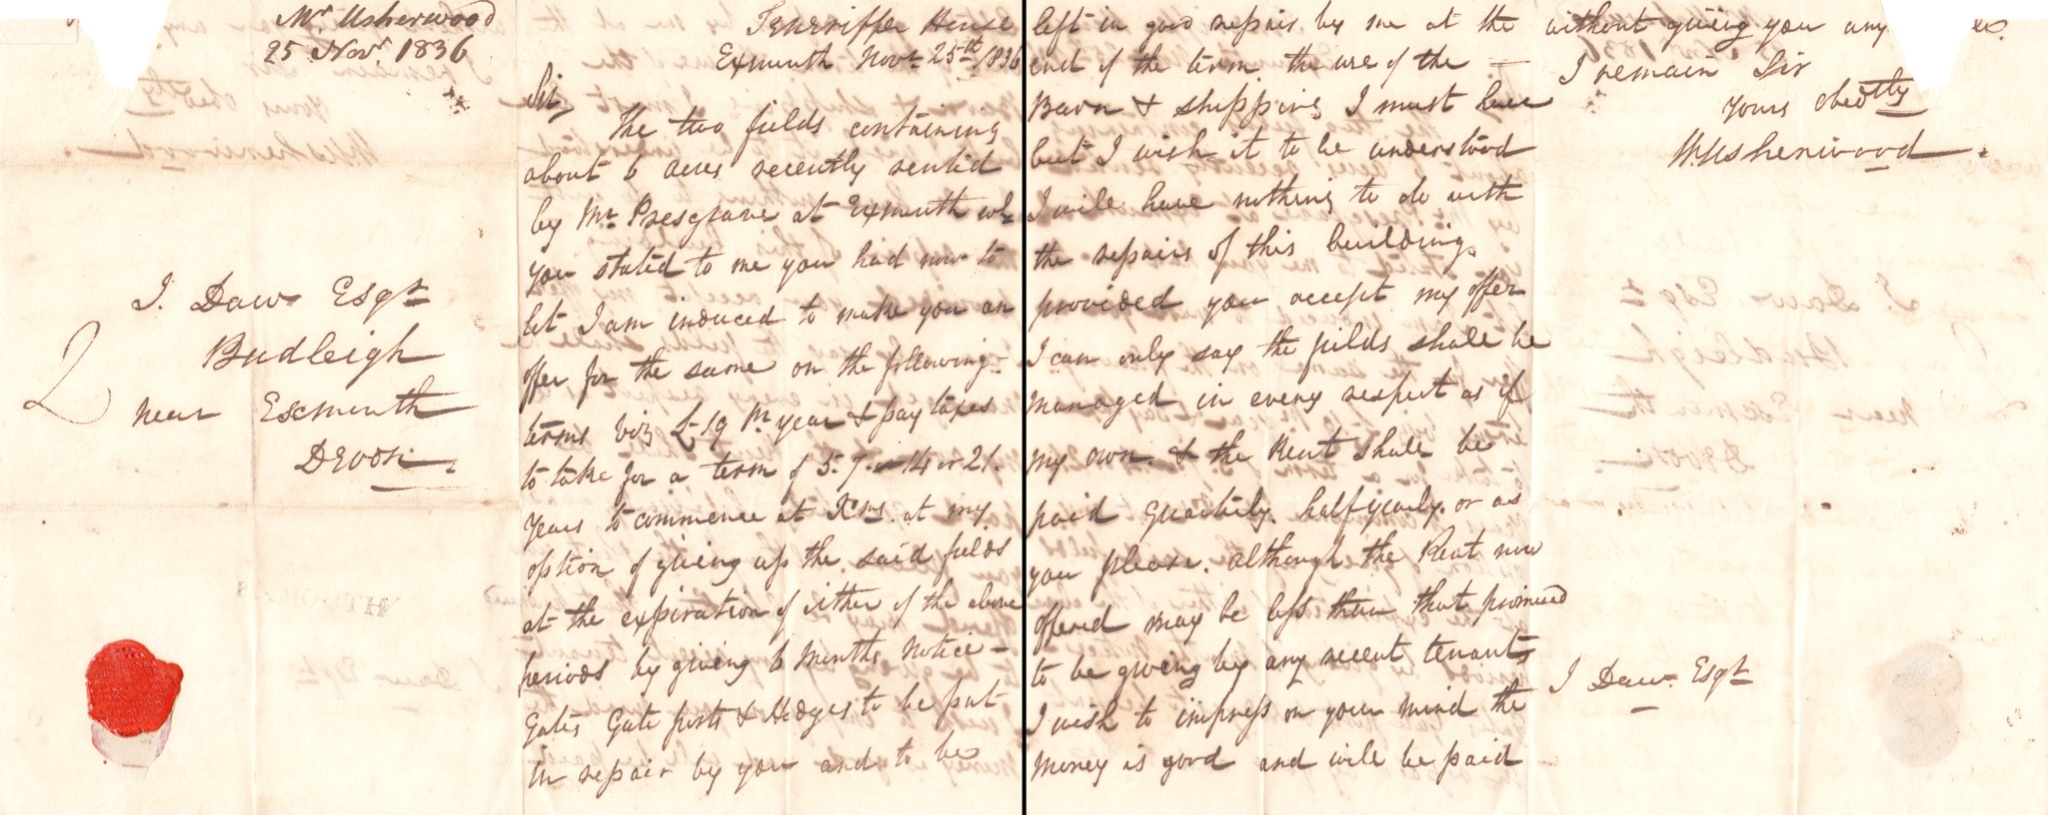 Mr. Usherwood
25 Novr. 1836
J. Daw Esqr
Budleigh
near Exmouth
Devon.
2
Teneriffe House
Exmouth Novr. 25th. 1836
Sir,
The two fields containing
about 6 acres recently rented
by Mr. Presgrave at Exmouth wh
you stated to me you had now to
let I am induced to make you an
offer for the same on the following-
terms viz £19 Pr year & pay taxes
to take for a term of 5. 7. or 14 or 21.
years to commence at Xms. at my
option of giveing up the said fields
at the expiration of either of the above
periods by giveing 6 months Notice -
Gates Gate posts & Hedges to be put
in repair by you and to be
left in good repair by me at the
end of the term. the use of the -
Barn & Shipping I must have
but I wish it to be understood
I will have nothing to do with
the repairs of this building.
provided you accept my offer
I can only say the fields shall be
managed in every respect as if
my own. & the Rent shall be
paid Quarterly. halfyearly. or as
you please. although the Rent now
offered may be less than that promised
to be giveing by any recent tenants
I wish to impress on your mind the
money is good and will be paid
without giveing you any
I remain Sir
Yours obedtly
W Usherwood.
J Daw. Esqr